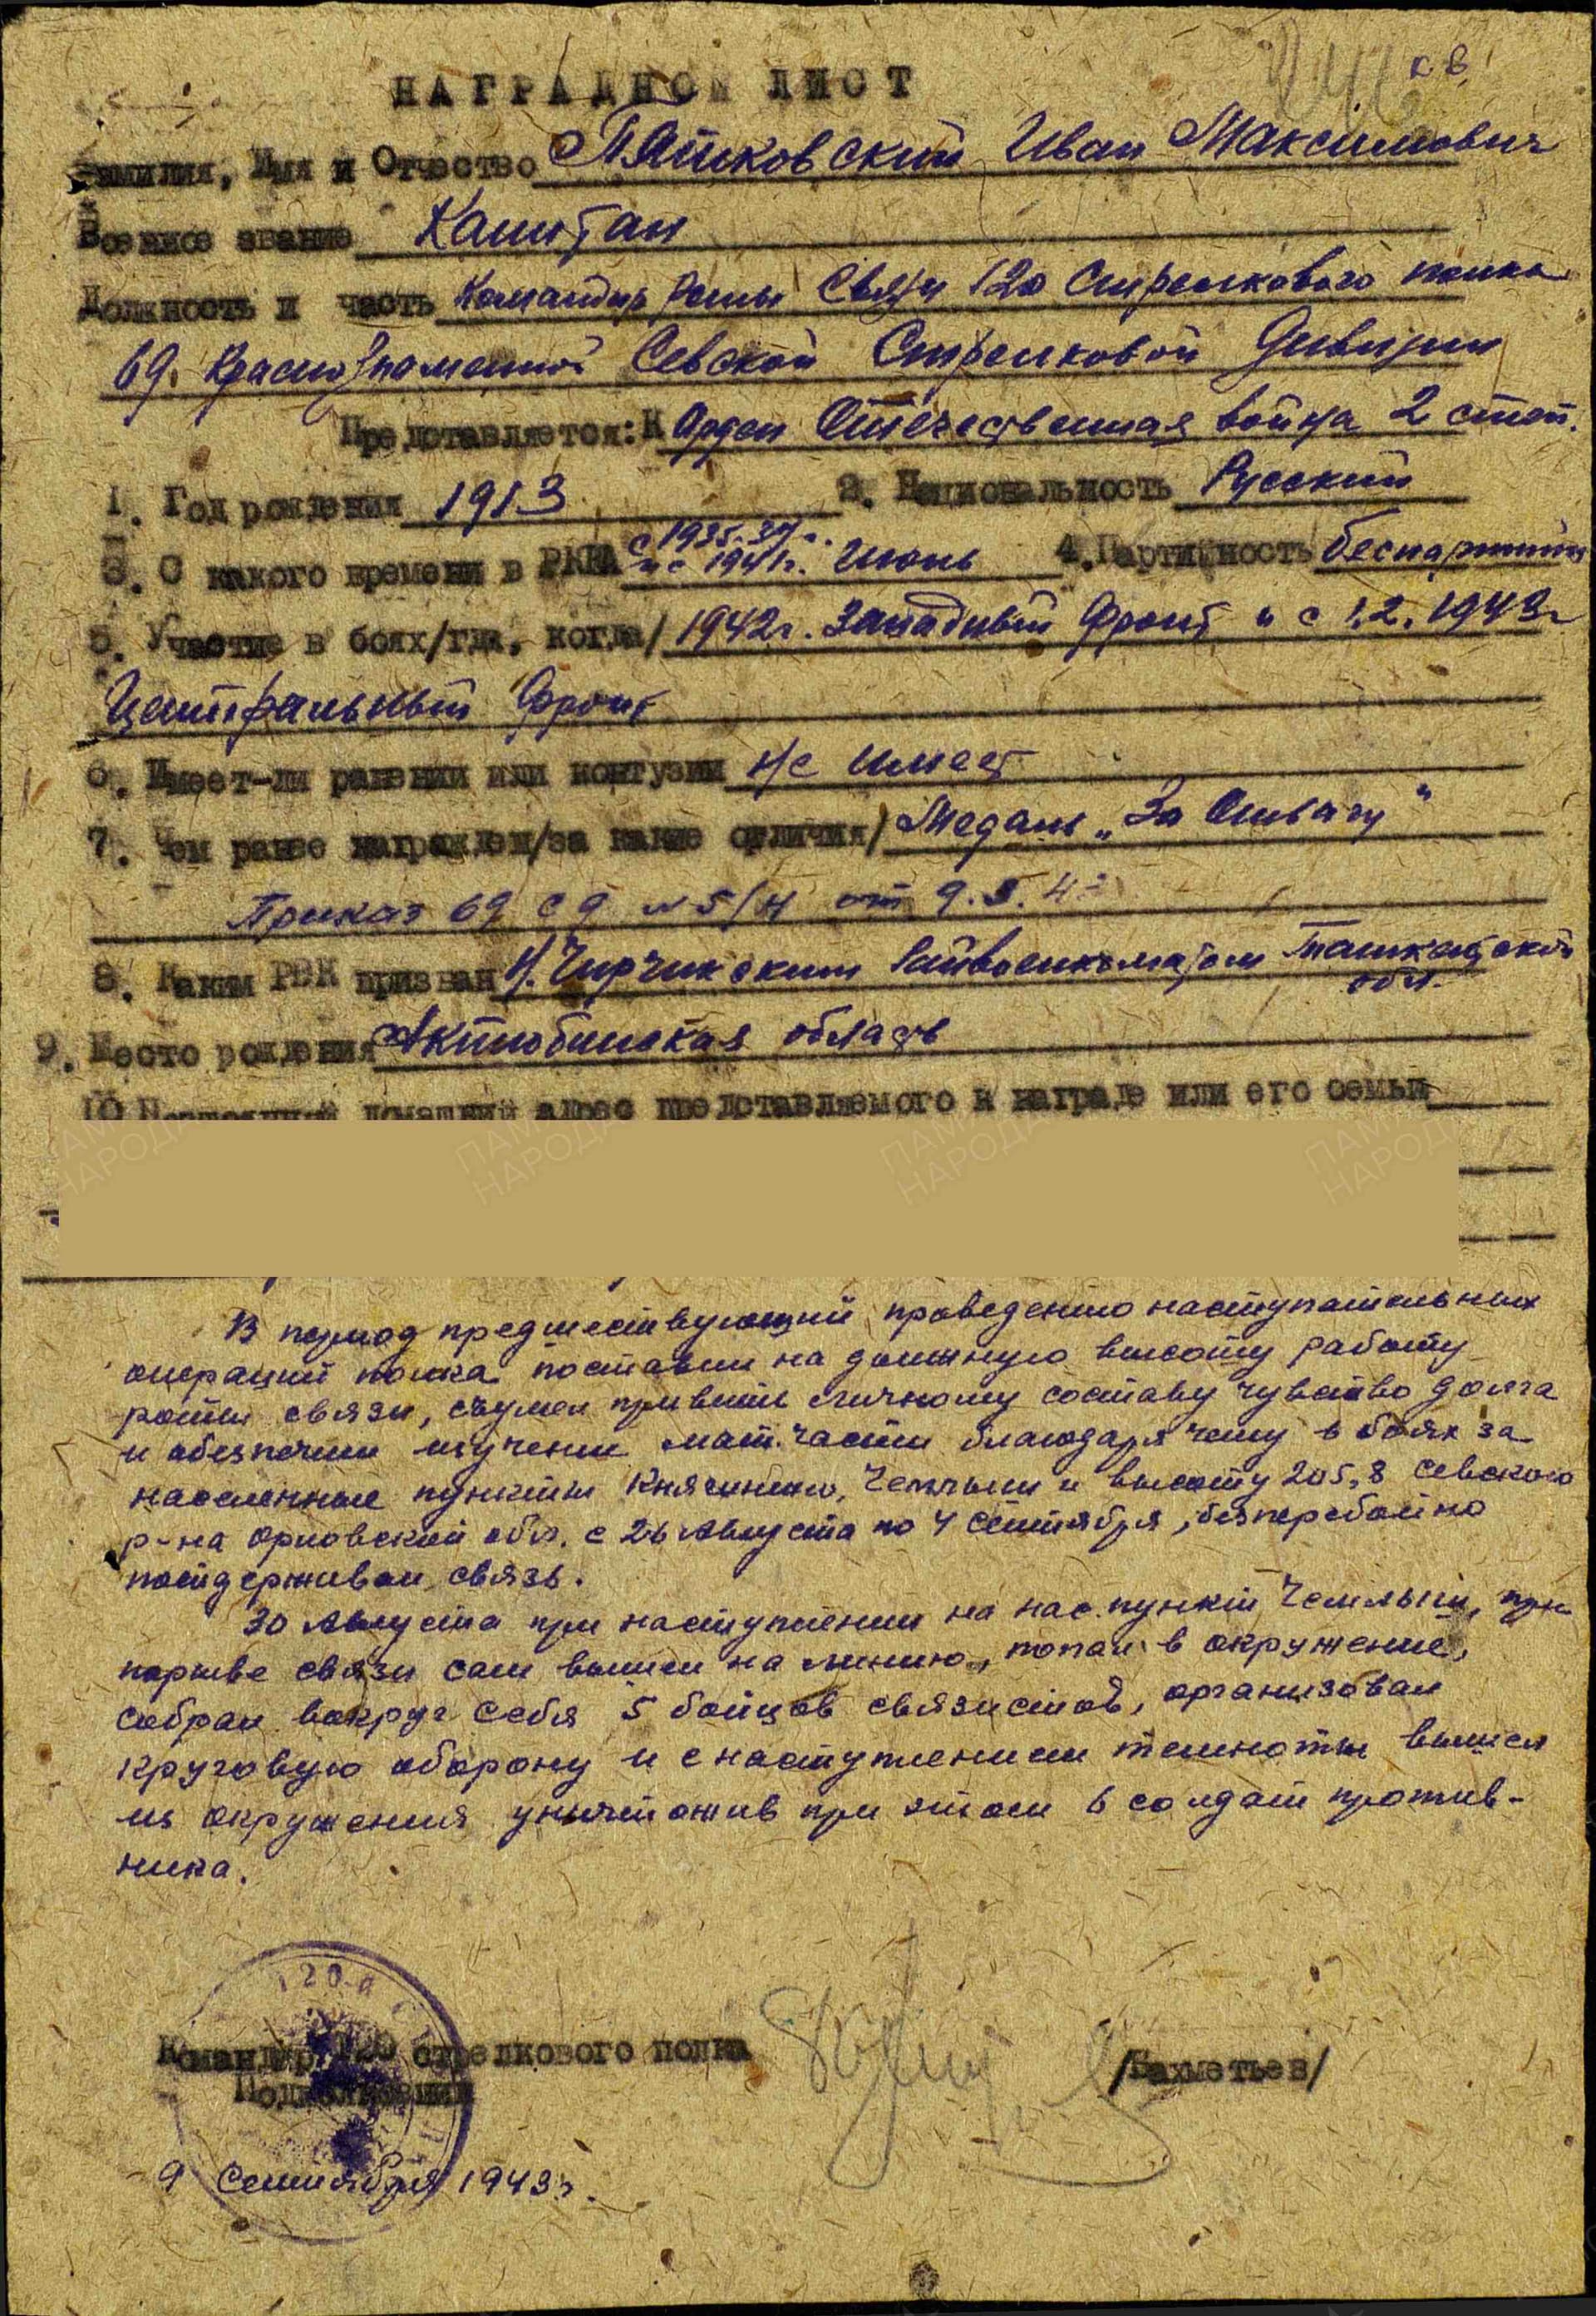 НАГРАДНОЙ ЛИСТ
Фамилия, Имя и Отчество Пятковский Иван Максимович
Военное звание Капитан
Должность и часть Командир Роты Связи 120 Стрелкового полка
69. Краснознаменной Севской Стрелковой Дивизии
Представляется: К Орден Отечественная война 2 степ.
1. Год рождения 1913 2. Национальность Русский
3. С какого времени в РККА с 1935-37 г. и с 1941г. Июнь 4. Партийность беспартийн
5. Участие в боях/где, когда/ 1942г. Западный Фронт и с 1.2.1943г
Центральный Фронт
6. Имеет-ли ранении или контузии Не имеет
7. Чем ранее награжден/за какие отличия/ Медаль „За Отвагу"
Приказ 69 СД № 5/н от 9.5.43
8. Каким РВК призван Н. Чирчикским Райвоенкоматом Ташкентской обл.
9. Место рождения Актюбинская область
10. Постоянный домашний адрес представляемого к награде или его семьи
В период предшествующий проведению наступательных
операций полка поставил на должную высоту работу
роты связи, сумел привить личному составу чувство долга
и обеспечил изучение мат.части благодаря чему в боях за
населенные пункты Княгинино, Чемлыш и высоту 205,8 Севского
р-на Орловской обл. с 26 Августа по 4 Сентября, бесперебойно
поддерживал связь.
30 Августа при наступлении на нас.пункт Чемлыш, при
порыве связи сам вышел на линию, попал в окружение,
собрал вокруг себя 5 бойцов связистов, организовал
круговую оборону и с наступлением темноты вышел
из окружения уничтожив при этом 6 солдат против-
ника.
Командир 120 стрелкового полка
Подполковник /Бахметьев/
9 Сентября 1943г.